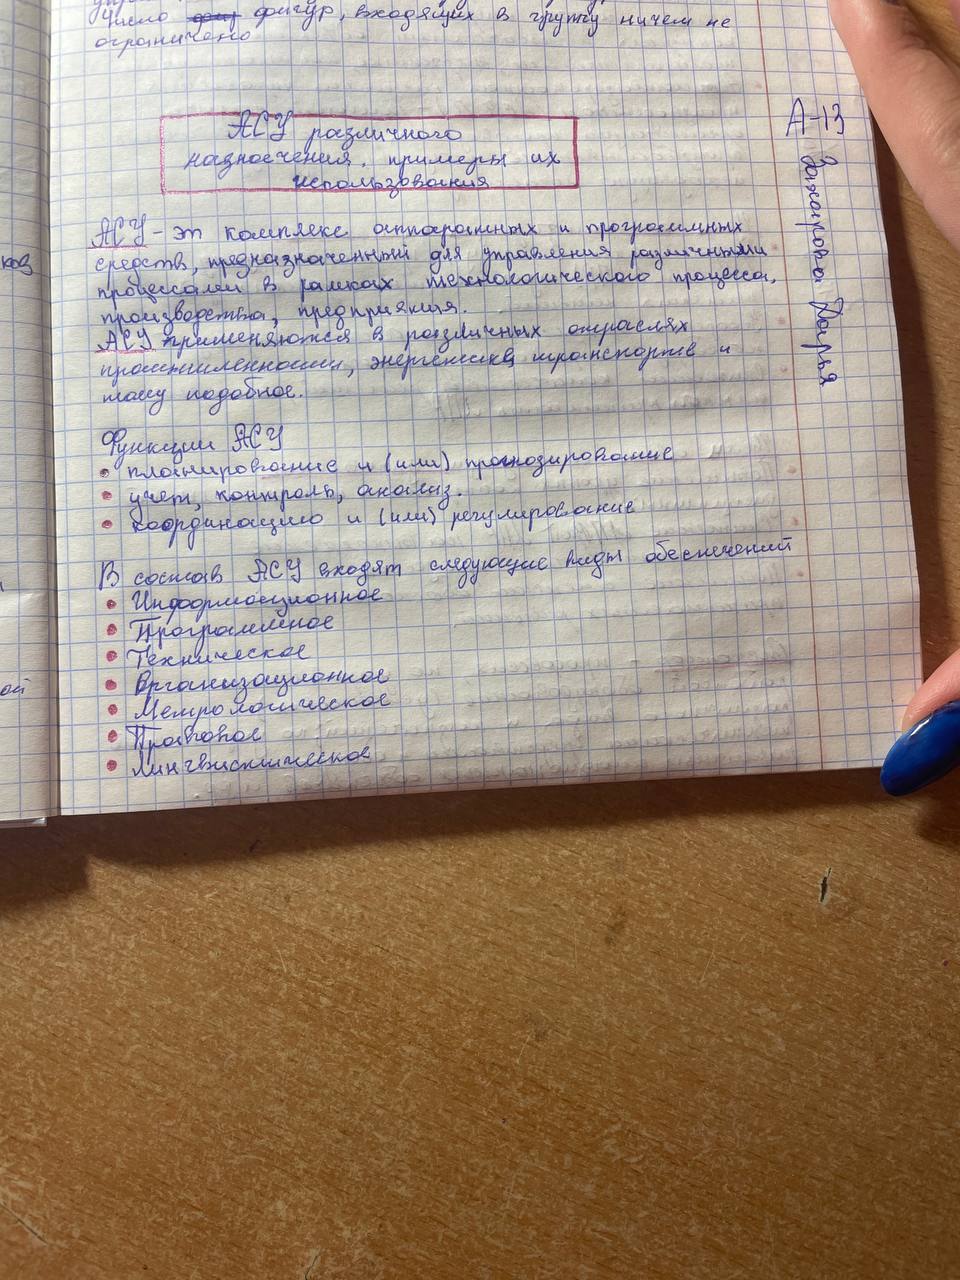 число фигур, входящих в группу ничем не
ограничено
АСУ различного
назначения, примеры их
использования
А-13
Дарья
АСУ - эт комплекс аппаратных и программных
средств, предназначенный для управления различными
процессами в рамках технологического процесса,
производства, предприятия.
АСУ применяются в различных отраслях
промышленности, энергетике, транспорте и
тому подобное.
Функции АСУ
• планирование и (или) прогнозирование
• учет, контроль, анализ.
• координацию и (или) регулирование
В состав АСУ входят следующие виды обеспечений
• Информационное
• Программное
• Техническое
• Организационное
• Метрологическое
• Правовое
• Лингвистическое
ков
ой